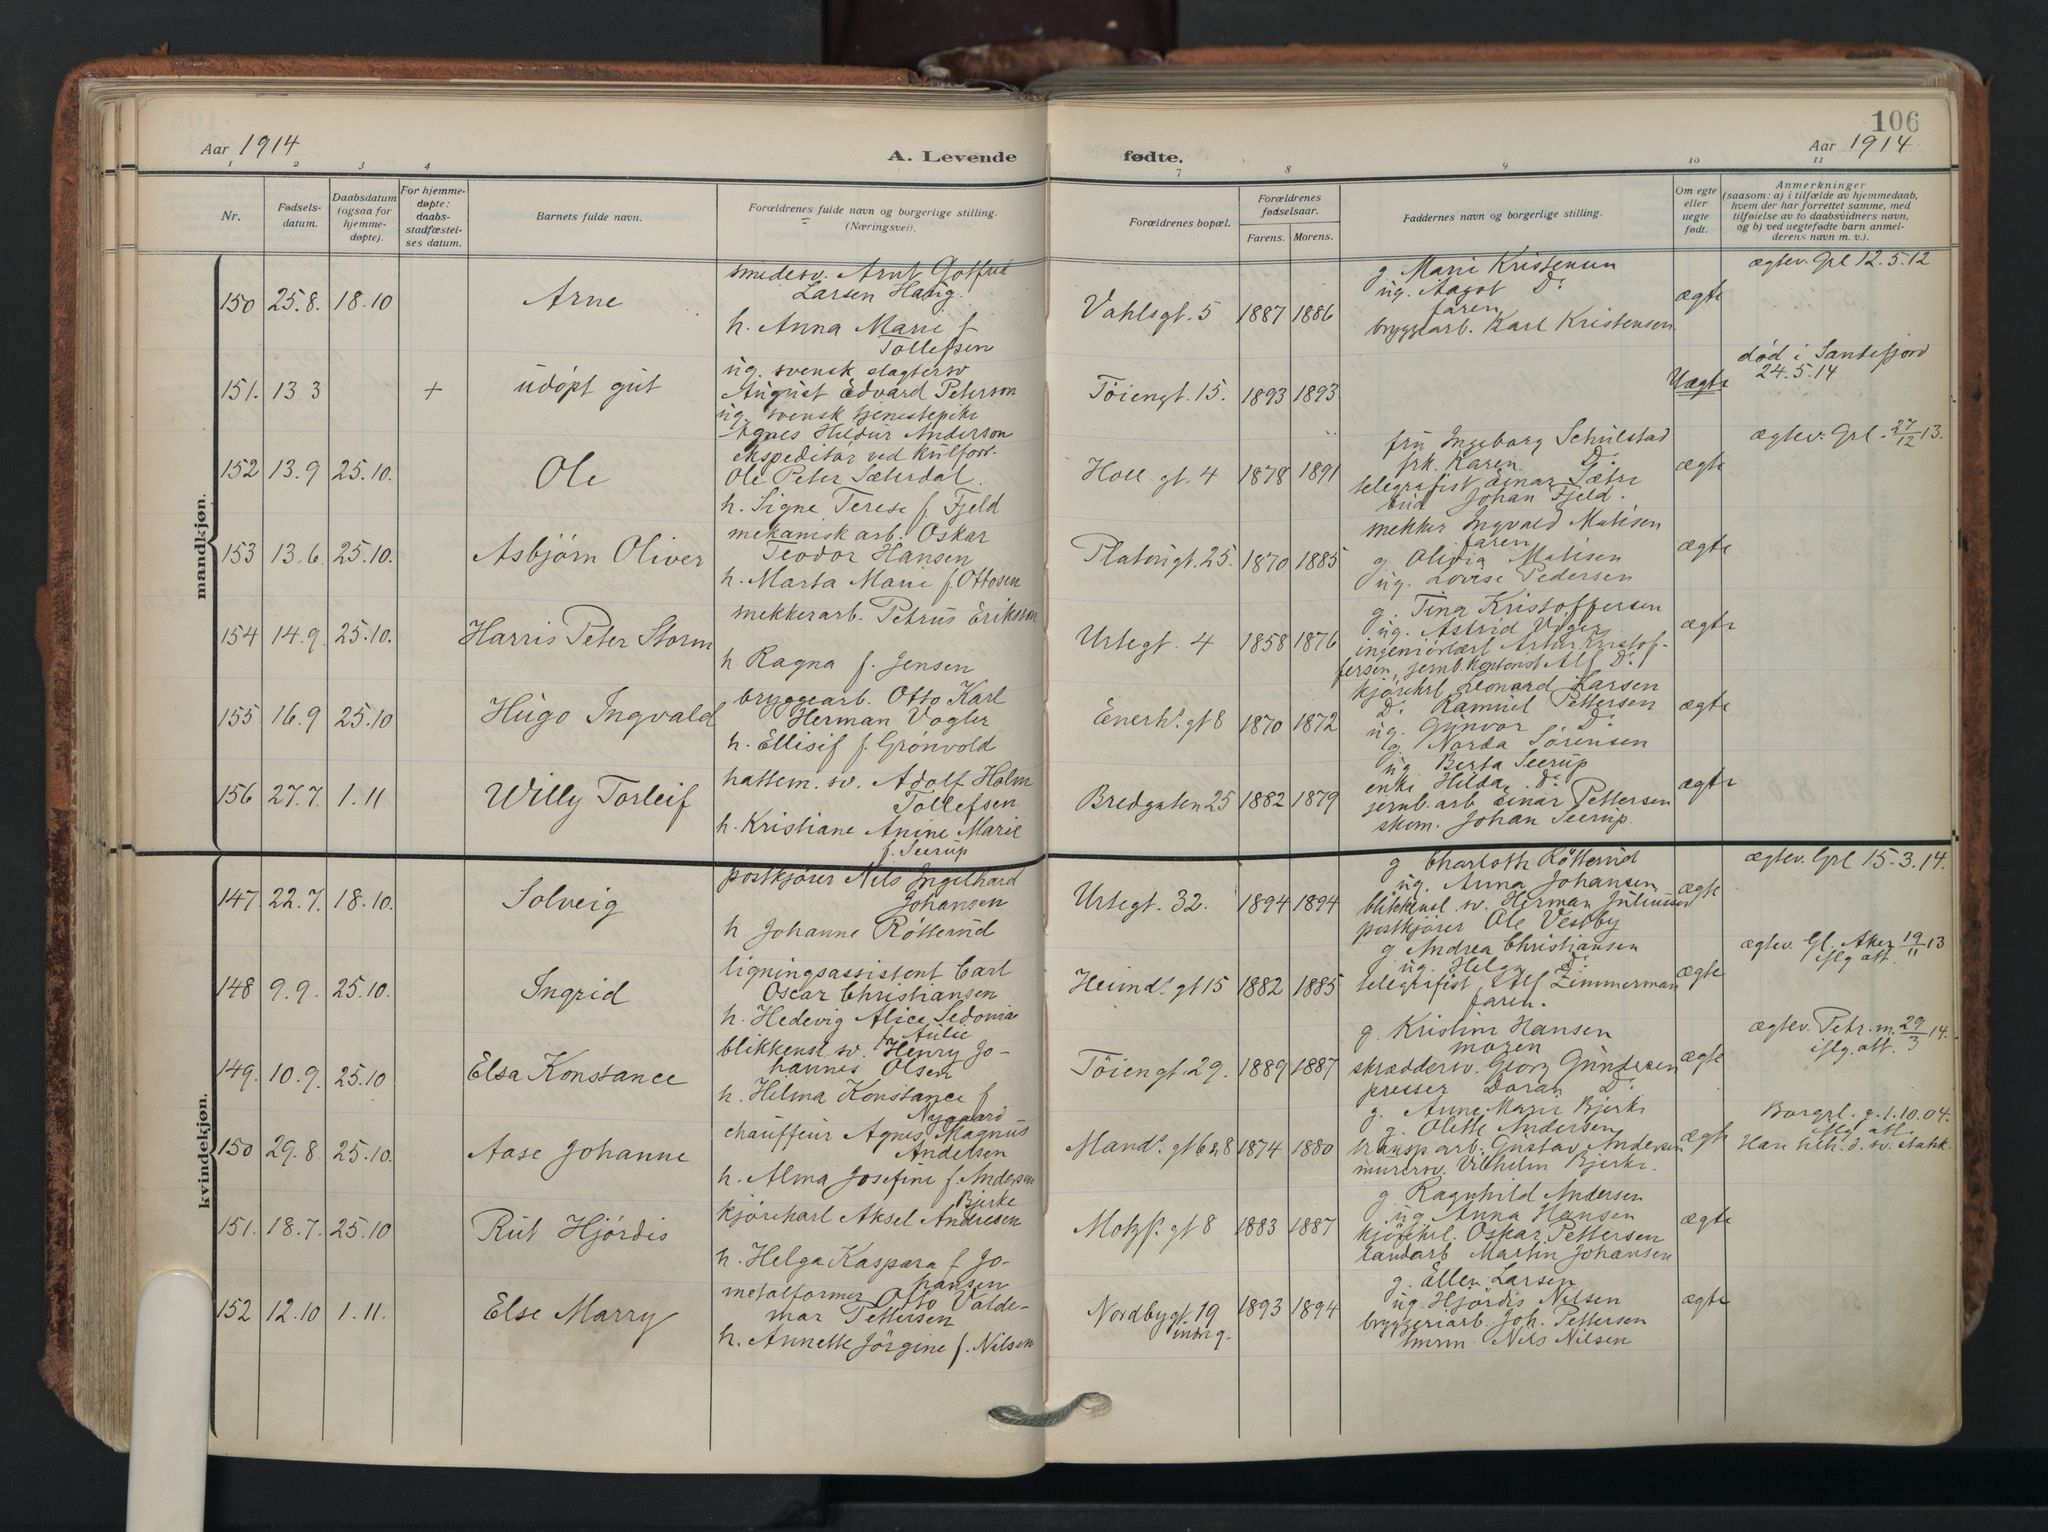 106
Aar 1914
A. Levende fødte.
Aar 1914
1 2 3 4 7 8 9 10 11
Nr.
Fødsels-
datum.
Daabsdatum
(ogsaa for
hjemme-
døpte).
For hjemme-
døpte:
daabs-
stadfæstel-
ses datum.
Barnets fulde navn.
Forældrenes fulde navn og borgerlige stilling.
(Næringsvei).
Forældrenes bopæl.
Forældrenes
fødselsaar.
Farens. Morens.
Faddernes navn og borgerlige stilling.
Om egte
eller
uegte
født.
Anmerkninger
(saasom: a) i tilfælde av hjemmedaab,
hvem der har forrettet samme, med
tilføielse av to daabsvidners navn,
og b) ved uegtefødte barn anmel-
derens navn m. v.).
mandkjøn.
150 25.8. 18.10 Arne
smedesv. Arnt Gotfred
Larsen Haug.
h. Anna Marie f
Tollefsen
Vahlsgt. 5 1887 1886
g. Marie Kristensen
ug. Aagot D:
faren
bryggearb. Karl Kristensen
ægte
ægtev. Grl 12.5.12
151. 13 3 + udøpt gut
ug. svensk slagtersv
August Edvard Peterson
ug. svensk tjenestepike
Agnes Hildur Anderson
Tøiengt. 15. 1893 1893
Uægte
død i Sandefjord
24.5.14
152 13.9 25.10. Ole
ekspeditør ved kulforr.
Ole Peter Sæterdal.
h. Signe Terese f. Fjeld
Holl. gt. 4 1878 1891
fru Ingeborg Schulstad
frk. Karen D:
telegrafist Einar Sætre
bud Johan Fjeld.
ægte
ægtev. Grl. 27/12 13.
153 13.6 25.10. Asbjørn Oliver
mekanisk arb. Oskar
Teodor Hansen
h. Marta Marie f Ottosen
Platousgt. 25. 1870 1885
mekker Ingvald Matisen
faren
g. Olivia Matisen
ug. Lovise Pedersen
ægte
154 14.9 25.10. Harris Peter Storm
mekkerarb. Petrus Eriksson
h. Ragna f. Jensen
Urtegt. 4 1858 1876
g. Tina Kristoffersen
ug. Astrid Vogler
ingeniörlærl Artur Kristof-
fersen, jernb.kontorist Alf D:
ægte
155 16.9 25.10 Hugo Ingvald
bryggearb. Otto Karl
Herman Vogler
h. Ellisif f. Grönvold
Enerh. gt 8 1870 1872
kjörekrl Leonard Larsen
D: Ramuel Pettersen
ug. Gunvor D:
g. Norda Sørensen
ægte
156 27.7. 1.11 Willy Torleif
hattem. sv. Adolf Holm
Tollefsen
h. Kristiane Anine Marie
f. Seerup
Bredgaten 25 1882 1879
ug. Berta Seerup
enke Hilda D:
jernb.arb Einar Pettersen
skom. Johan Seerup.
ægte
kvindekjøn.
147 22.7. 18.10. Solveig
postkjører Nils Ingelhard
Johansen
h Johanne Rötterud
Urtegt. 32. 1894 1894
g Charlotte Rötterud
ug. Anna Johansen
blikkensl. sv. Herman Juliussen
postkjører Ole Vestby
ægte
ægtev. Grl 15.3.14.
148 9.9. 25.10. Ingrid
ligningsassistent Carl
Oscar Christiansen
h. Hedevig Alice Sedonia
f. Aulie
Heimd. gt 15 1882 1885
g. Andrea Christiansen
ug. Helga D:
telegrafist Alf Zimmerman
faren.
ægte
ægtev. Gl. Aker 19/11 13
iflg att.
149. 10.9. 25.10 Elsa Konstance
blikkensl sv. Henry Jo-
hannes Olsen
h. Helma Konstance f
Nygaard
Töiengt. 29. 1889 1887
g. Kristine Hansen
moren
skræddersv. Georg Gundersen
presser Doran D:
ægte
ægtev. Petr. m. 29/3 14.
iflg. att.
150 29.8. 25.10. Aase Johanne
chauffeur Agnes Magnus
Andersen
h. Alma Josefine f. Andersen
Bjerke
Mand. gt 6 28 1874 1880
g. Anne Marie Bjerke
g. Olette Andersen
transp arb. Gustav Andersen
murersv. Vilhelm Bjerke.
ægte
Borgrl. g. 1.10.04.
iflg att.
151. 18.7. 25.10 Rut Hjördis
kjørekarl Aksel Andresen
h. Helga Kaspara f Jo-
hansen
Motzf. gt 8 1883 1887
g. Ragnhild Andersen
ug Anna Hansen
kjörekrl. Oskar Pettersen
landarb Martin Johansen
ægte
152 12.10 1.11. Else Marry
metalformer Otto Valde-
mar Pettersen
h. Annette Jörgine f. Nilsen
Nordbygt. 19 1893 1894
g. Ellen Larsen
ug. Hjördis Nilsen
bryggeriarb. Joh. Pettersen
Nils Nilsen
ægte